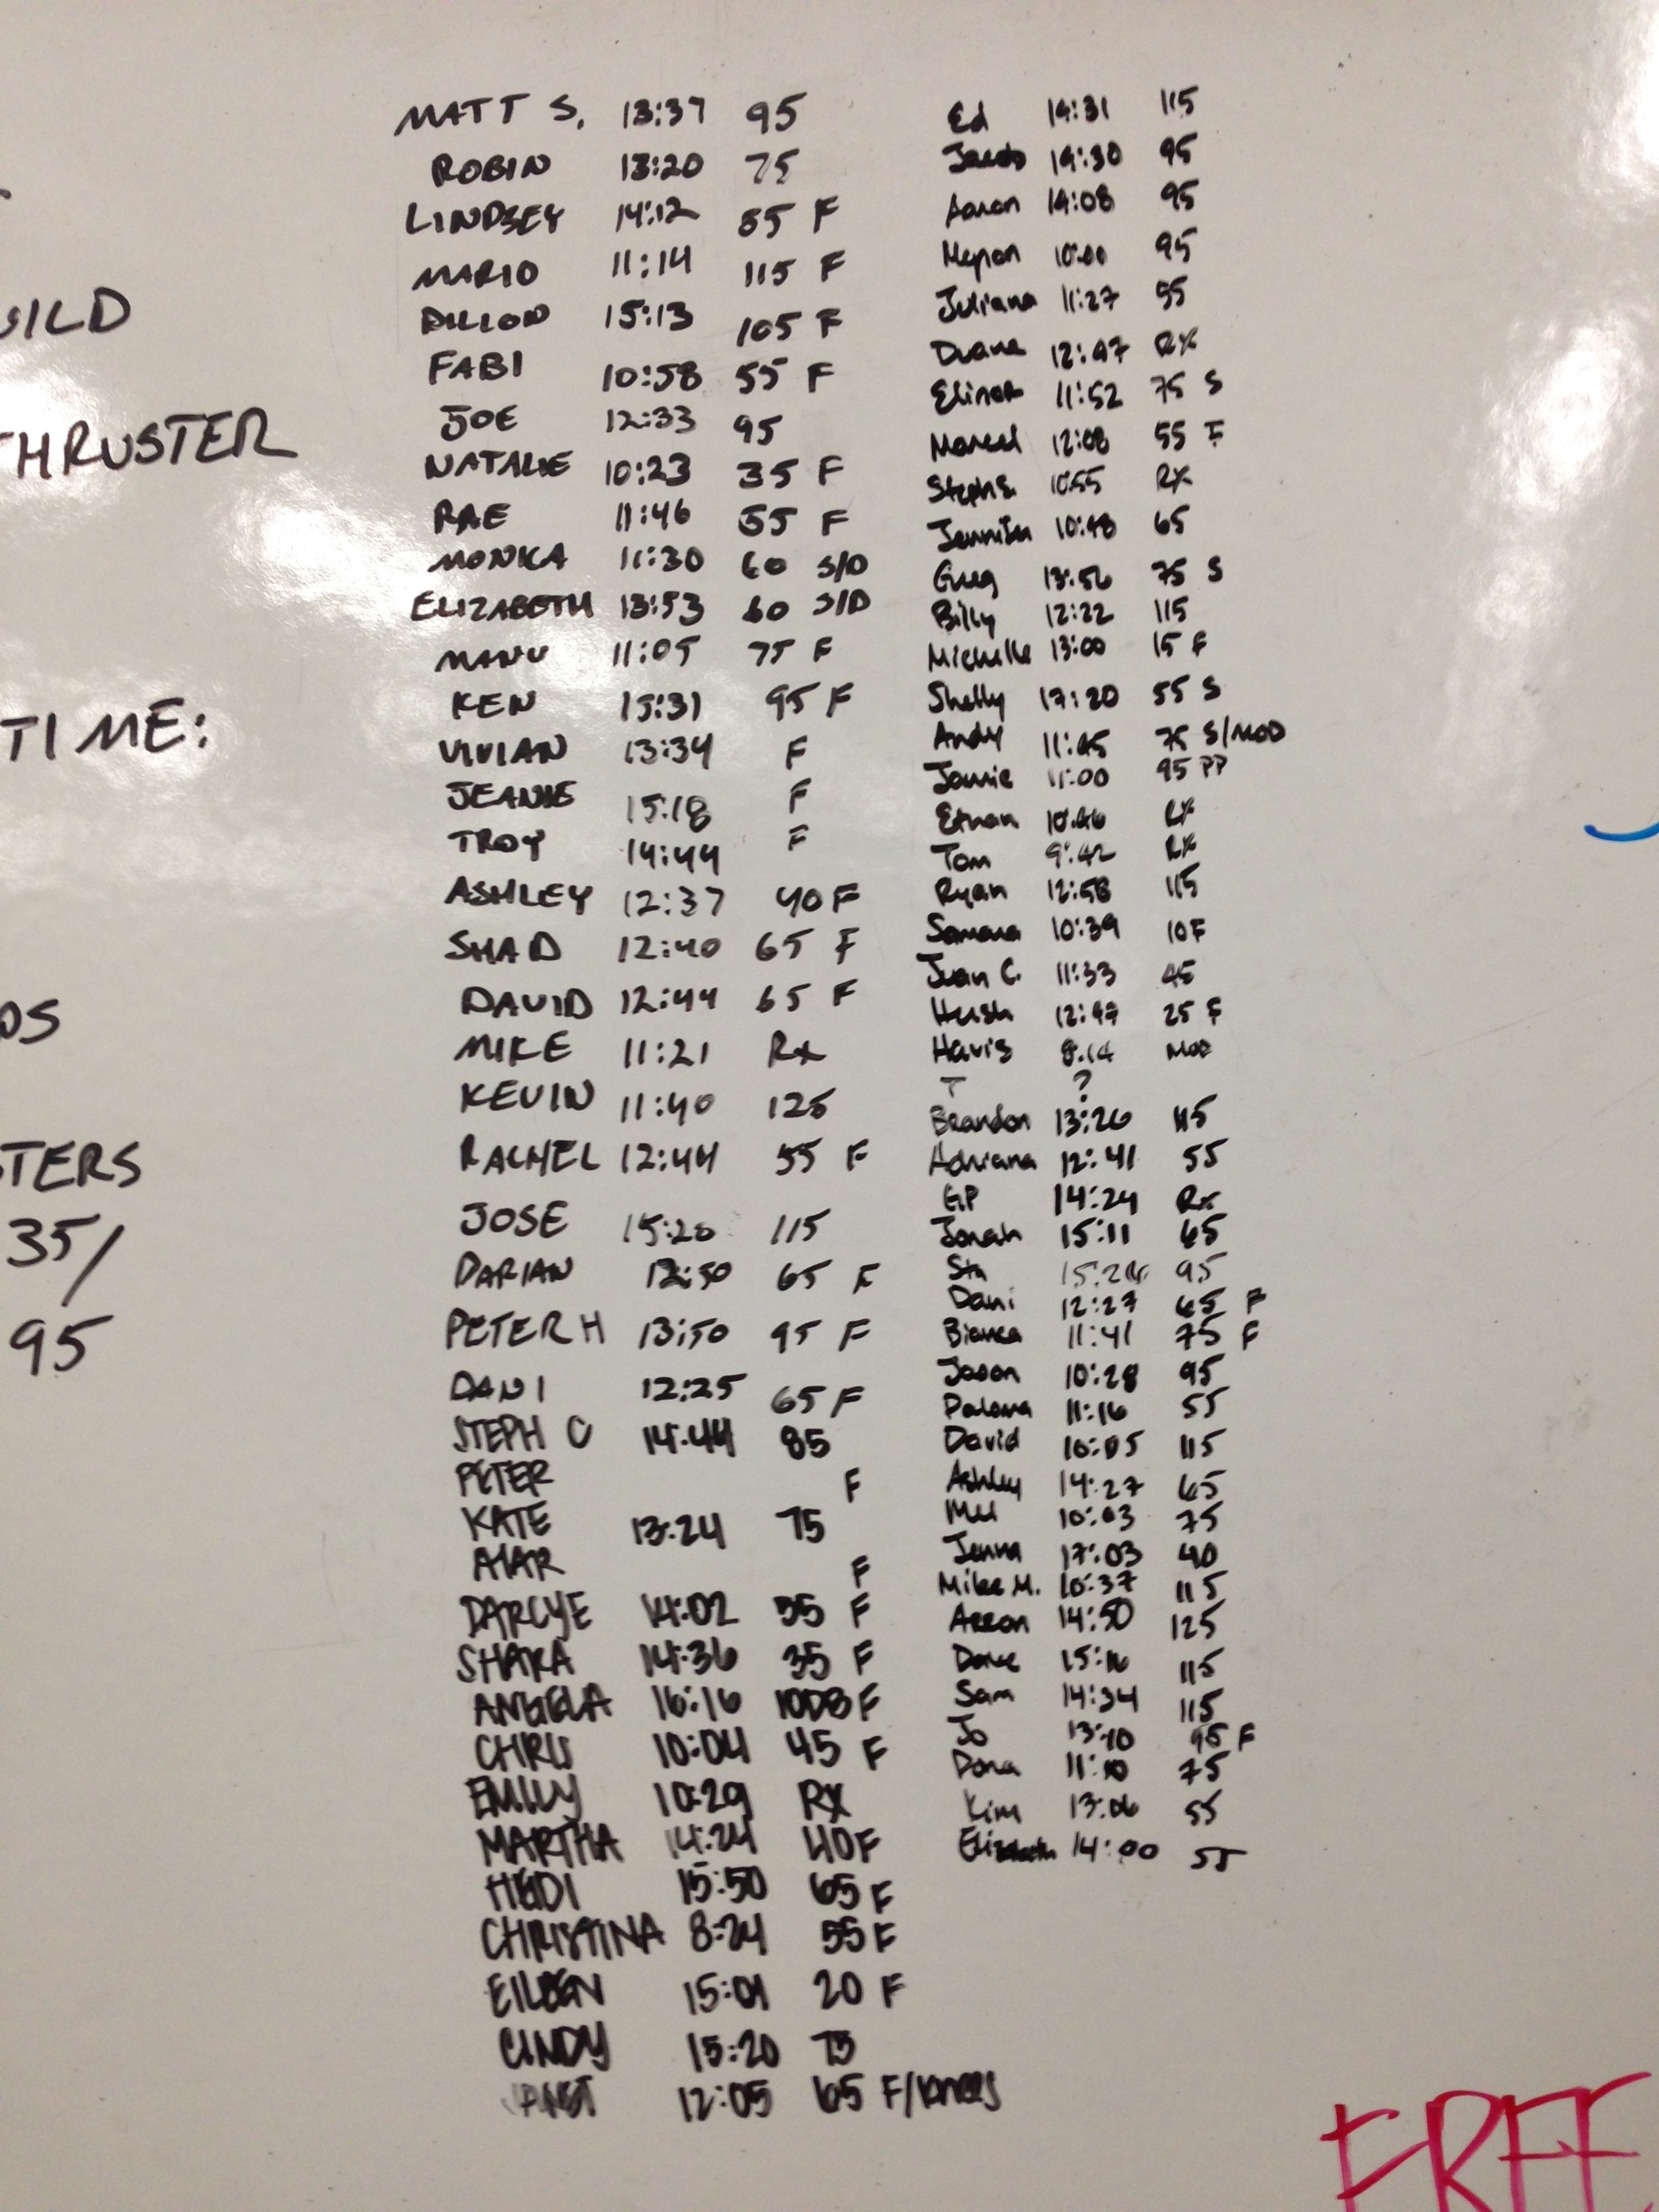 UILD
THRUSTER
TIME:
DS
TERS
35/
95
MATT S. 13:37 95
ROBIN 13:20 75
LINDSEY 14:12 55 F
MARIO 11:14 115 F
DILLON 15:13 105 F
FABI 10:58 55 F
JOE 12:33 95
NATALIE 10:23 35 F
RAE 11:46 55 F
MONIKA 11:30 60 S/D
ELIZABETH 13:53 60 S/D
MANU 11:05 75 F
KEN 15:31 95 F
VIVIAN 13:34 F
JEANIE 15:18 F
TROY 14:44 F
ASHLEY 12:37 40 F
SHAD 12:40 65 F
DAVID 12:44 65 F
MIKE 11:21 Rx
KEVIN 11:40 125
RACHEL 12:44 55 F
JOSE 15:28 115
DARIAN 12:50 65 F
PETER H 13:50 95 F
DANI 12:25 65 F
STEPH C 14:44 85
PETER F
KATE 13:24 75
F
DARCYE 14:02 55 F
SHARA 14:36 35 F
ANGELA 16:16 10DB F
CHRIS 10:04 45 F
EMILY 10:29 RX
MARTHA 14:24 40 F
HEIDI 15:50 65 F
CHRISTINA 8:24 55 F
EILEEN 15:01 20 F
CINDY 15:20 75
JANET 12:05 65 F/KNEES
Ed 14:31 115
Jacob 14:30 95
Aaron 14:08 95
10:00 95
Juliana 11:27 55
Duane 12:47 RX
Elinor 11:52 75 S
Marcel 12:08 55 F
Steph S. 10:55 RX
Jennifer 10:48 65
Greg 13:56 75 S
Billy 12:22 115
Michelle 13:00 15 F
Shelly 17:20 55 S
Andy 11:45 75 S/MOD
Jamie 11:00 95 PP
Ethan 10:46 RX
Tom 9:42 RX
Ryan 12:58 115
Samara 10:39 10F
Juan C. 11:33 45
Hersh 12:47 25 F
Havis 8:14 MOD
T ?
Brandon 13:26 115
Adriana 12:41 55
GP 14:24 Rx
Jonah 15:11 65
Stu 95
Dani 12:27 65 F
Bianca 11:41 75 F
Jason 10:28 95
Paloma 11:16 55
David 16:05 115
Ashley 14:27 65
Mel 10:03 75
Jenna 17:03 40
Mike M. 10:37 115
Arron 14:50 125
Dave 15:16 115
Sam 14:34 115
Jo 13:10 95 F
Dona 11:10 75
Kim 13:06 55
Elizabeth 14:00 55
FREE